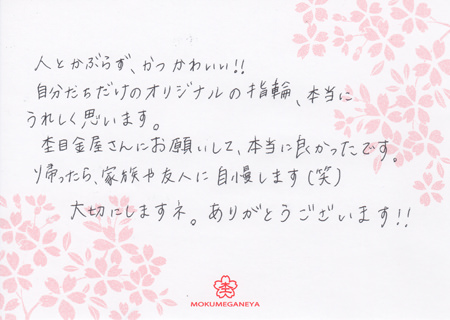 人とかぶらず、かつかわいい!!
自分たちだけのオリジナルの指輪、本当に
うれしく思います。
杢目金屋さんにお願いして、本当に良かったです。
帰ったら、家族や友人に自慢します(笑)
大切にしますネ。ありがとうございます!!
杢
MOKUMEGANEYA